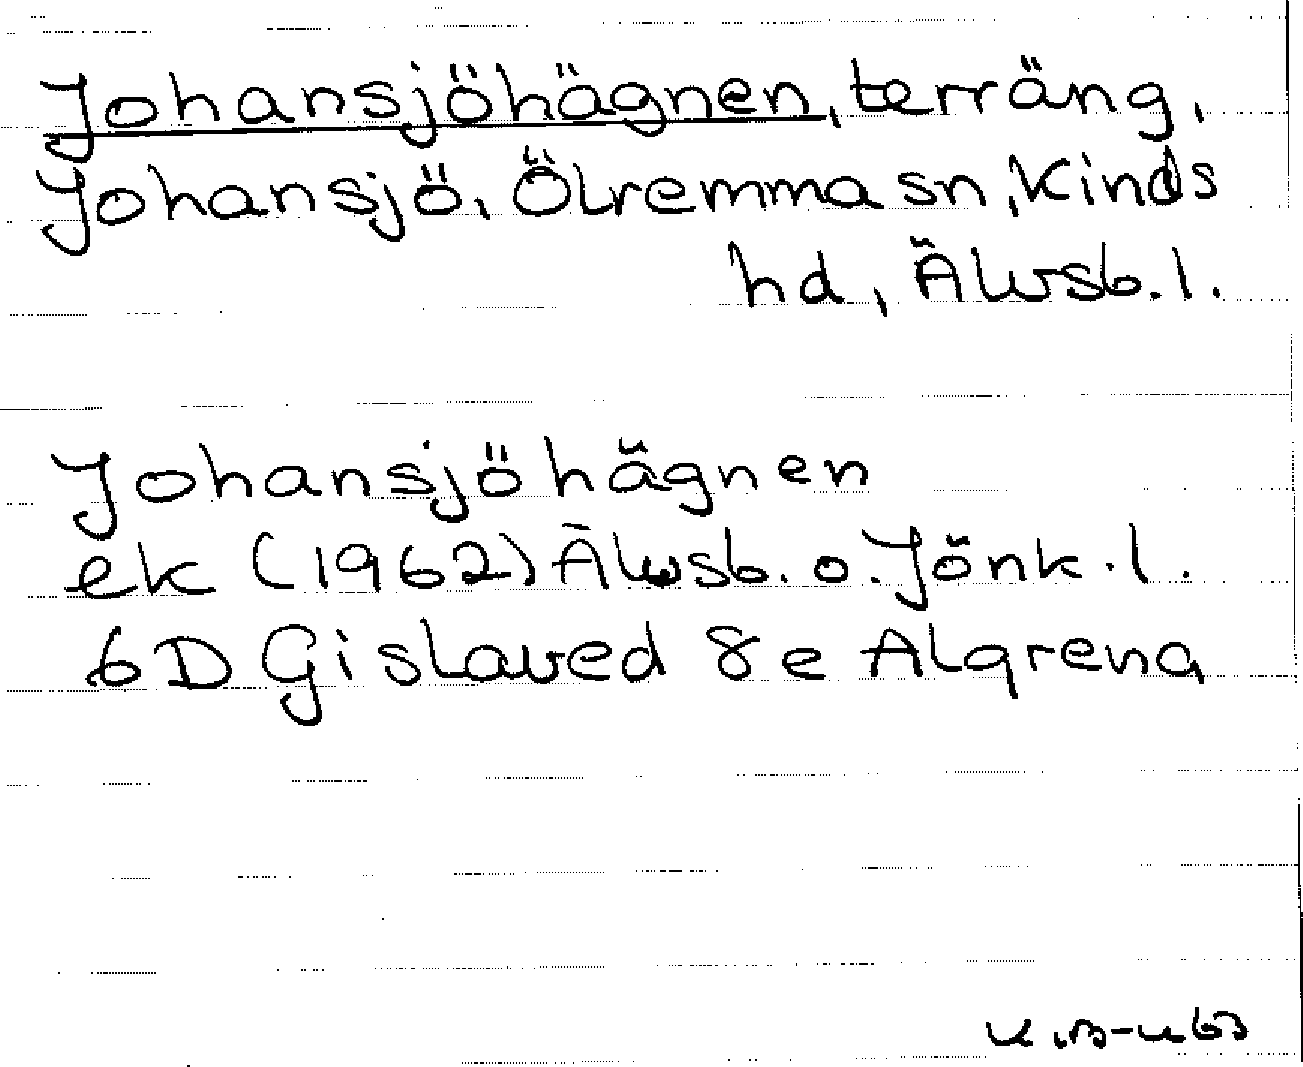 Johansjöhägnen, terräng,
Johansjö, Ölremma sn, Kinds
hd, Älvsb. l.
Johansjöhägnen
ek (1962) Älvsb. o. Jönk. l.
6D Gislaved 8e Algrena